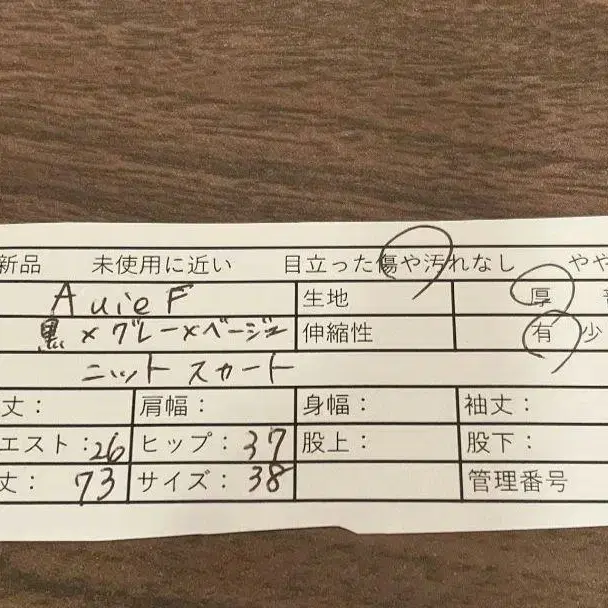 新品 未使用に近い 目立った傷や汚れなし やや
AuieF 生地 厚
黒×グレー×ベージュ 伸縮性 有 少
ニット スカート
丈： 肩幅： 身幅： 袖丈：
エスト：26 ヒップ：37 股上： 股下：
丈： 73 サイズ：38 管理番号